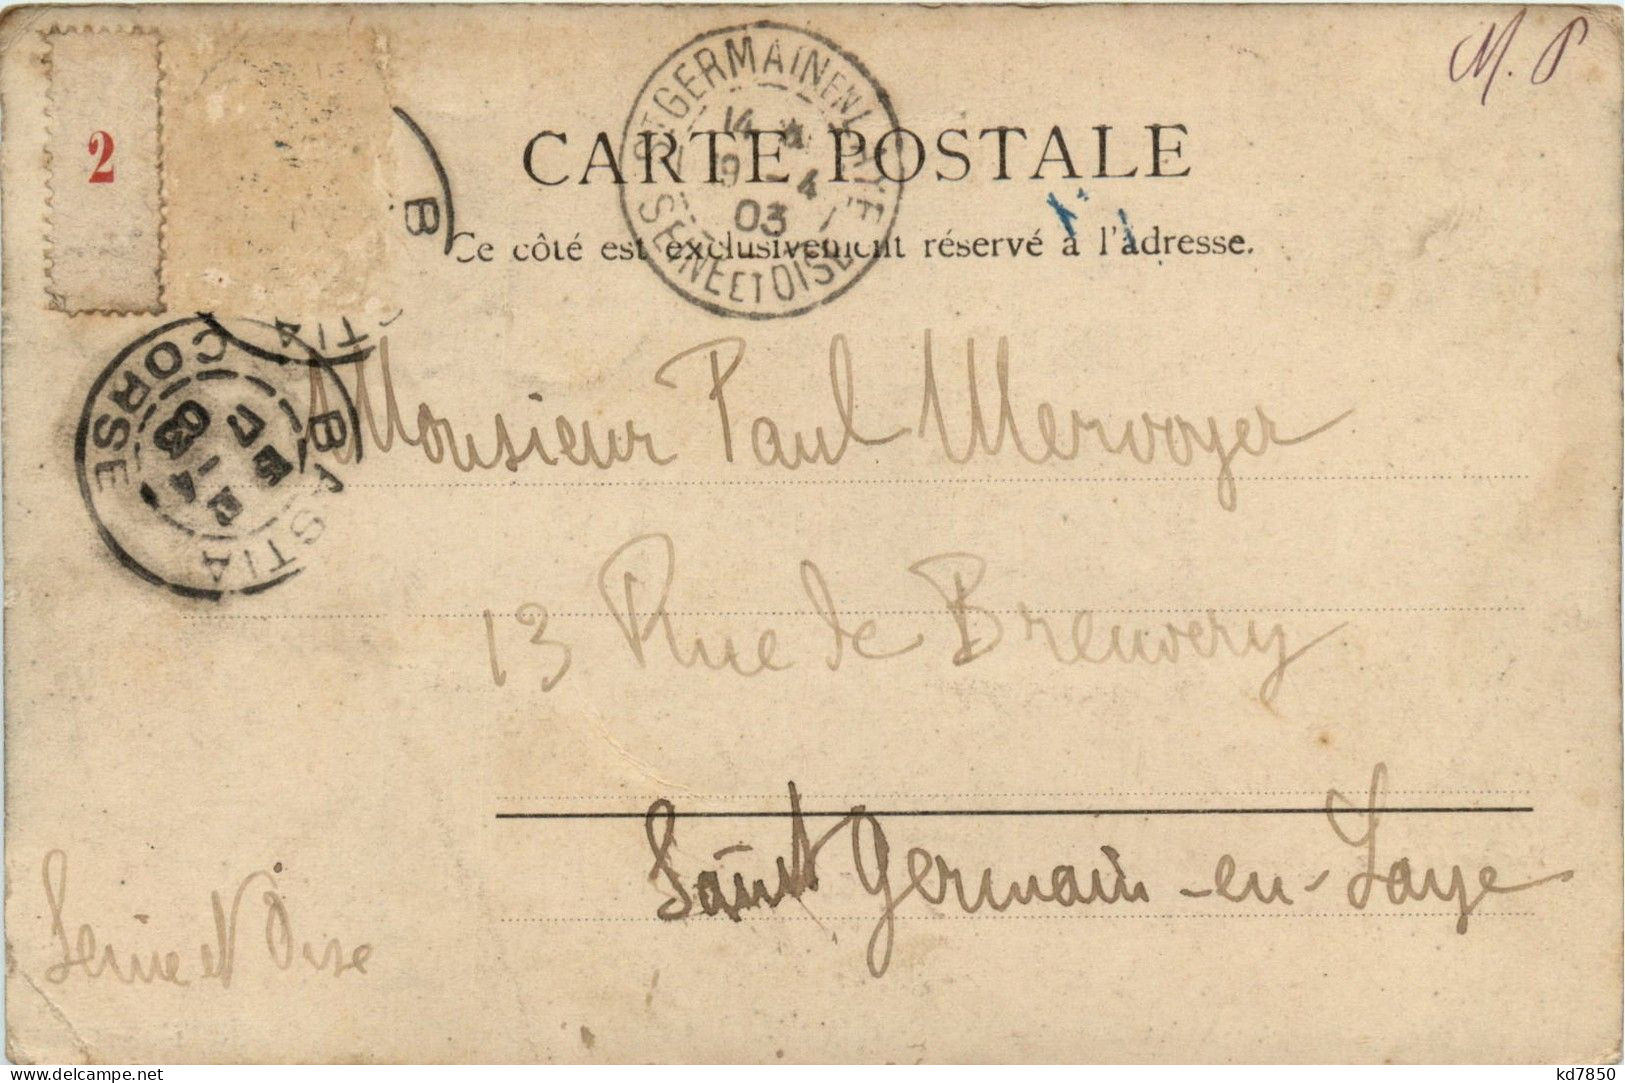 M. P
2
ST GERMAIN EN LAYE
14
9 - 4
03
SEINE ET OISE
CARTE POSTALE
Ce côté est exclusivement réservé à l'adresse.
B
TIA
BASTIA
CORSE
4
03
Monsieur Paul Mervoyer
13 Rue de Breuvery
Saint Germain-en-Laye
Seine et Oise
delcampe.net
kd7850